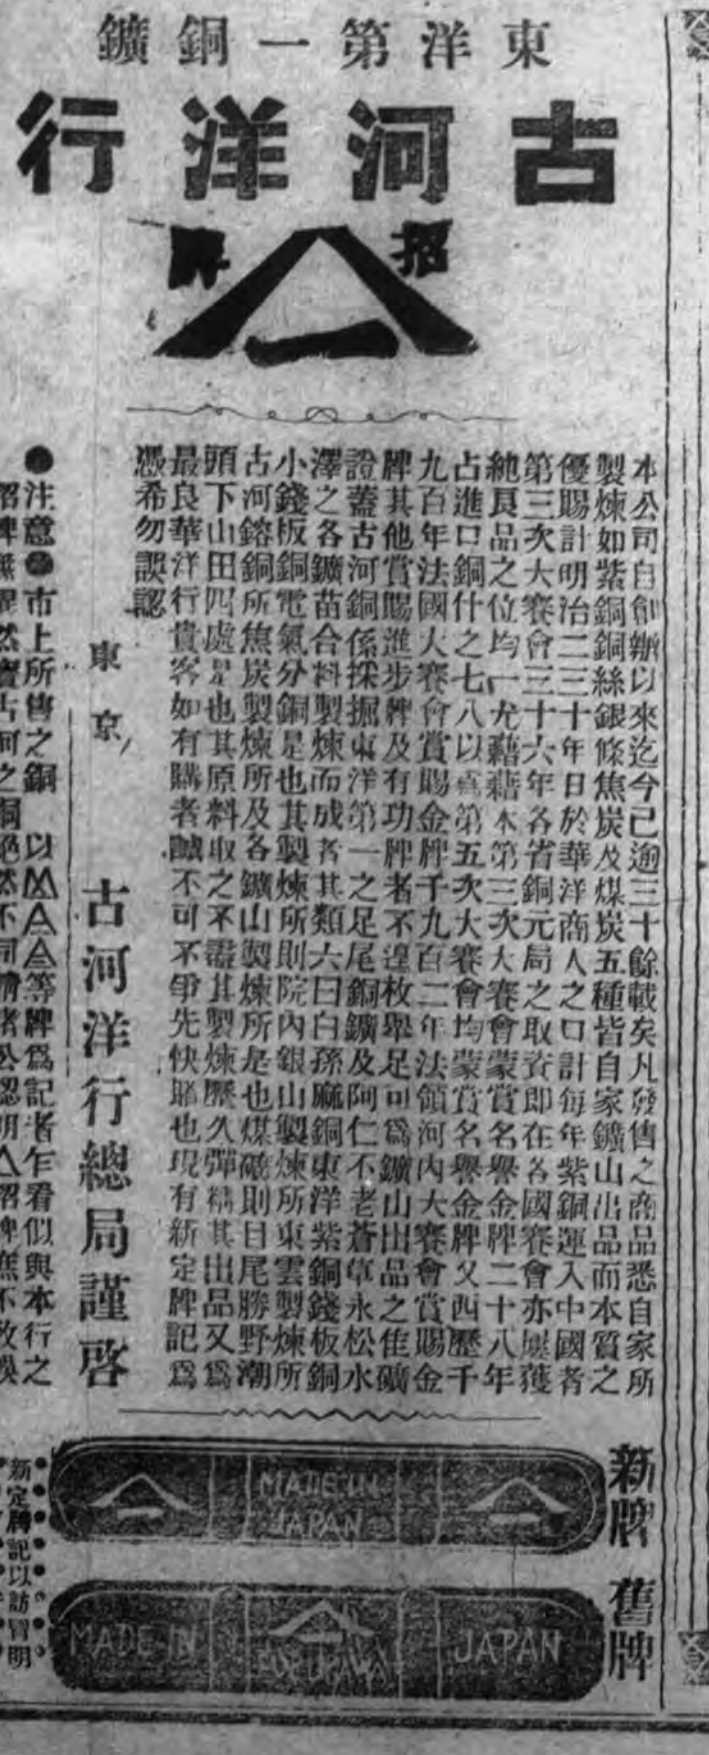 東洋第一銅鑛
古河洋行
招牌
本公司自創辦以來迄今已逾三十餘載矣凡發售之商品悉自家所
製煉如紫銅銅絲銀條焦炭及煤炭五種皆自家鑛山出品而本質之
優賜計明治二三十年日於華洋商人之口計每年紫銅運入中國者
第三次大賽會三十六年各省銅元局之取資即在各國賽會亦屢獲
純良品之位均一尤藉藉本第三次大賽會蒙賞名譽金牌二十八年
占進口銅什之七八以第五次大賽會均蒙賞名譽金牌又西歷千
九百年法國大賽會賞賜金牌千九百二年法領河內大賽會賞賜金
牌其他賞賜進步牌及有功牌者不遑枚舉足可爲鑛山出品之佳礦
證蓋古河銅係採掘東洋第一之足尾銅鑛及阿仁不老蒼草永松水
澤之各鑛苗合料製煉而成者其類六曰白孫麻銅東洋紫銅錢板銅
小錢板銅電氣分銅是也其製煉所則院內銀山製煉所東雲製煉所
古河鎔銅所焦炭製煉所及各鑛山製煉所是也煤礦則目尾勝野潮
頭下山田四處是也其原料取之不盡其製煉歷久彈精其出品又爲
最良華洋行貴客如有購者誠不可不爭先快賭也現有新定牌記爲
憑希勿誤認
東京
古河洋行總局謹啓
●注意●市上所售之銅以等牌爲記者乍看似與本行之
招牌無異然實古河之銅絕然不同請諸公認明招牌庶不致誤
新牌
MADE IN
JAPAN
舊牌
MADE IN
FURUKAWA
JAPAN
新定牌記以訪冒明